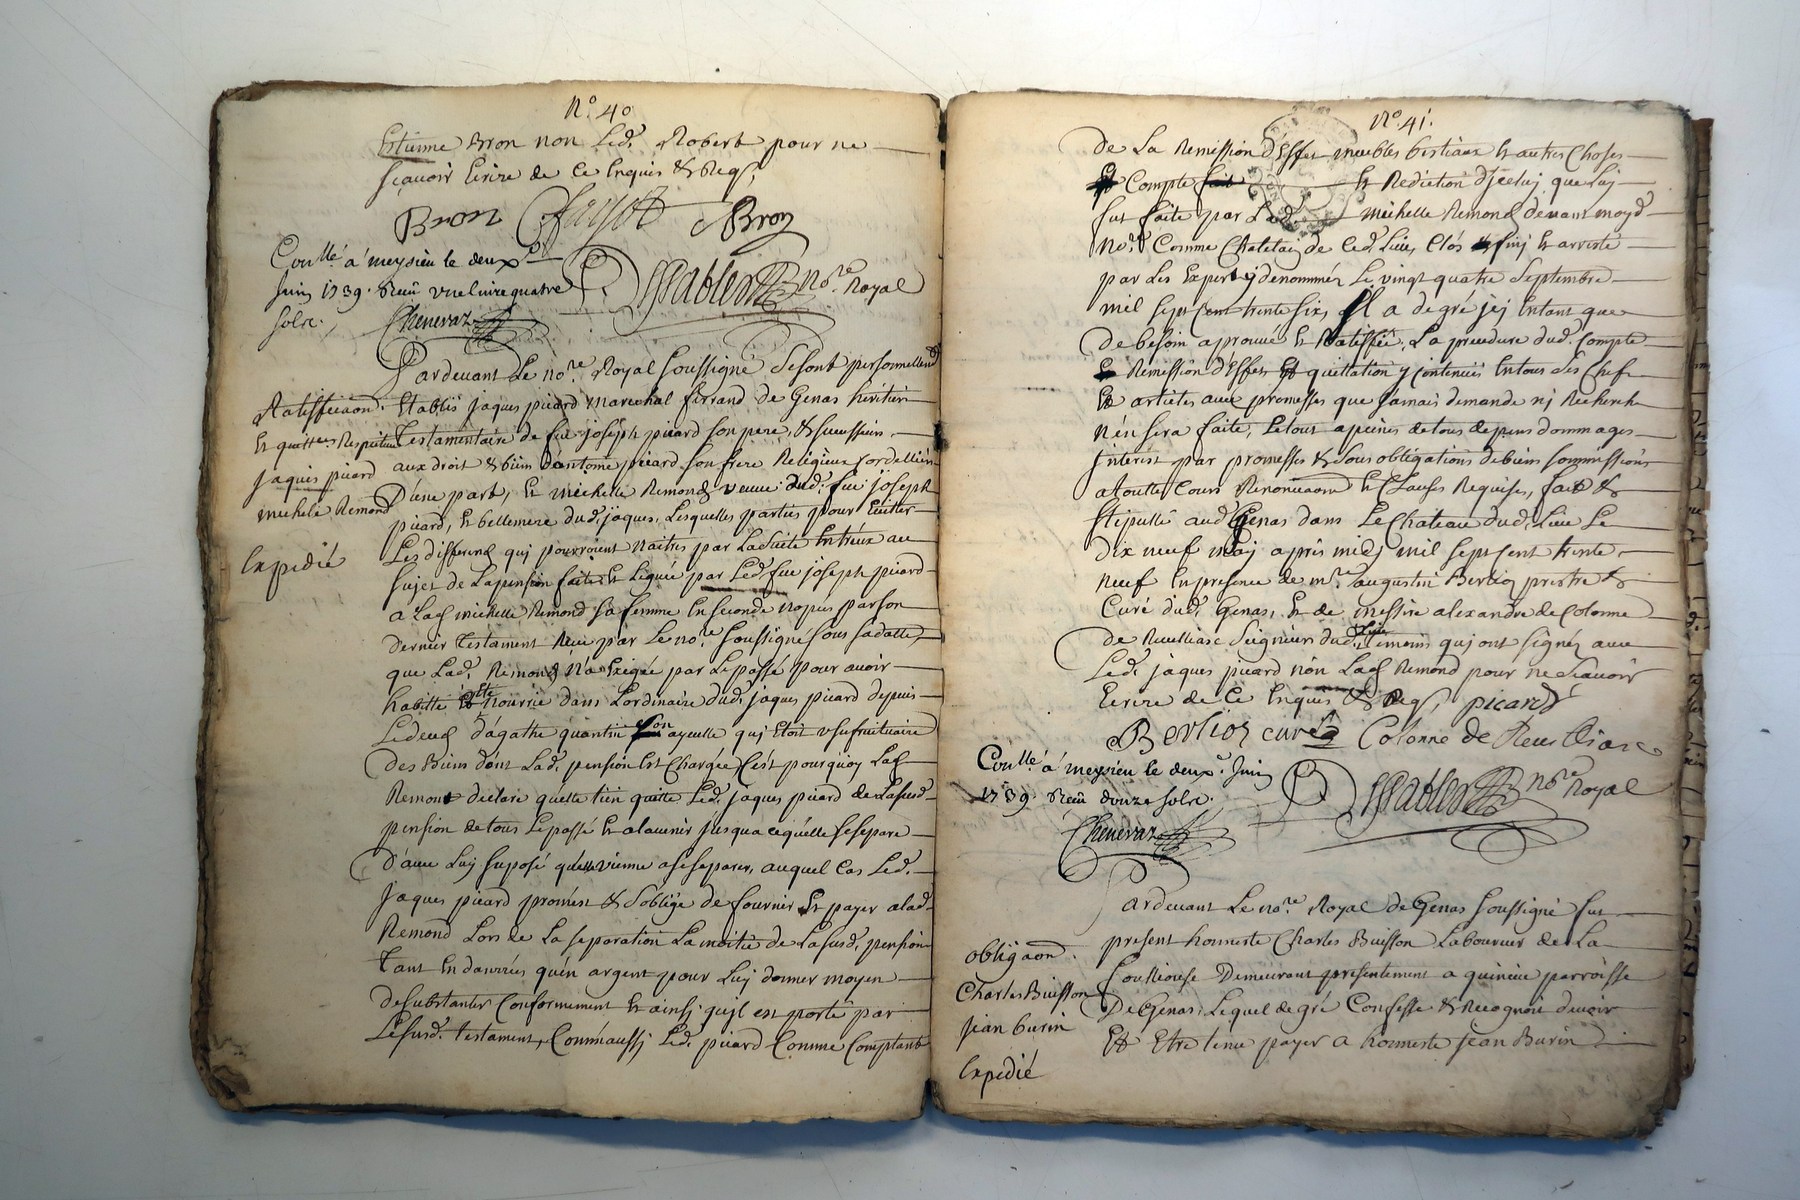 N.° 40
Estienne Bron non Led. Robert pour ne
sçavoir Ecrire de Ce Enquis & Req.
Bron Fayot Bron
Coullé á meysieu le deux.e
Juin 1739. Receu une livre quatre
sols.
Chenevaz
no.re Royal
Pardevant Le no.re Royal soussigné sesont personnellem.t
Ratifficaon. Etablis jaques picard marechal ferrand de Genas héritier
Et quitt.ce Respective Testamentaire de feu joseph picard son pere, & successeur
jaques picard aux droit & biens d'antoine picard son frere Religieux Cordellier
michele Remond D'une part, Et michelle Remond veuve dud. feu joseph
picard, Et bellemere dud. jaques, Lesquelles parties pour Eviter
Expedié
Les differend quj pourroient Naitres par La Suite Entréux au
sujet de La pension faitte Et leguée par Led. feu joseph picard
a Lad. michelle Remond sa femme En seconde nopces par son
dernier testament Receu par Le no.re soussigné sous sa datte,
que Lad. Remond N'a Exigée par Le passé pour avoir
habitté Et été nourrie dans L'ordinaire dud. jaques picard depuis
Le deced d'agathe quantin son ayeulle quj Etoit usufruituaire
Des Biens dont Lad. pension Est Chargée, C'est pourquoy Lad.
Remond declare quelle tien quitte Led. jaques picard de La susd.
pension de tous Le passé Et al avenir jusqua ce quelle se separe
D'avec Luj suposé quelle vienne a se separer, auquel Cas Led.
jaques picard promest & s'oblige de fournir Et payer a lad.
Remond Lors de La separation La moitié de La susd. pension
Tant En danrées quén argent pour Luj donner moyen
de substanter Conformement Et ainsj quil est porté par
Le susd. testament, Comm'aussj Led. picard Comme Comptant
N.° 41.
de La Remission d'Effet meubles bestiaux Et autres Choses
Compte Et Rediction d'jceluj que Luj
fut faite par Lad. michelle Remond devant moyd.
No.re Comme Chatelain de Ced. Lieu, Clos & finj Et arresté
par Les Expert y denommés Le vingt quatre Septembre
mil sept Cent trente six, Il a de gré jcj Entant que
De besoin aprouvé Et Ratiffié, La procedure dud. Compte
Remission d'Effets Et quittation y contenües En tous Ses Chefs
Et articles avec promesses que jamais demande nj Recherche
N'en sera faite, Le tout a peines de tous depens dommages
Interest par promesses & sous obligations de biens soumissions
a toutte Cours Renonciaons Et Clauses Requises, fait &
Stipullé aud. Genas dans Le Chateau dud. Lieu Le
Dix neuf maj aprés midj mil sept Cent trente
Neuf En presence de m.re augustin Berlioz prestre &
Curé dud. Genas, Et de messire alexandre de Colonne
de Reuilliasc Seigneur dud. Lieu témoins quj ont signés avec
Led. jaques picard nón Lad. Remond pour ne scavoir
Ecrire de Ce Enquis & Req. picard
Berlioz curé Colonne de Reuilliasc
Coullé á meysieu le deux.e Juin
1739. Receu douze sols.
no.re Royal
Chenevaz
Pardevant Le no.re Royal de Genas soussigné fut
obligaon. present honneste Charles Buisson Laboureur de La
Charles Buisson demeurant presentement a quincieu parroisse
jean burin De Genas, Lequel de gré Confesse & Recognoit devoir
Et Etre tenu payer a honneste jean Burin
Expedié